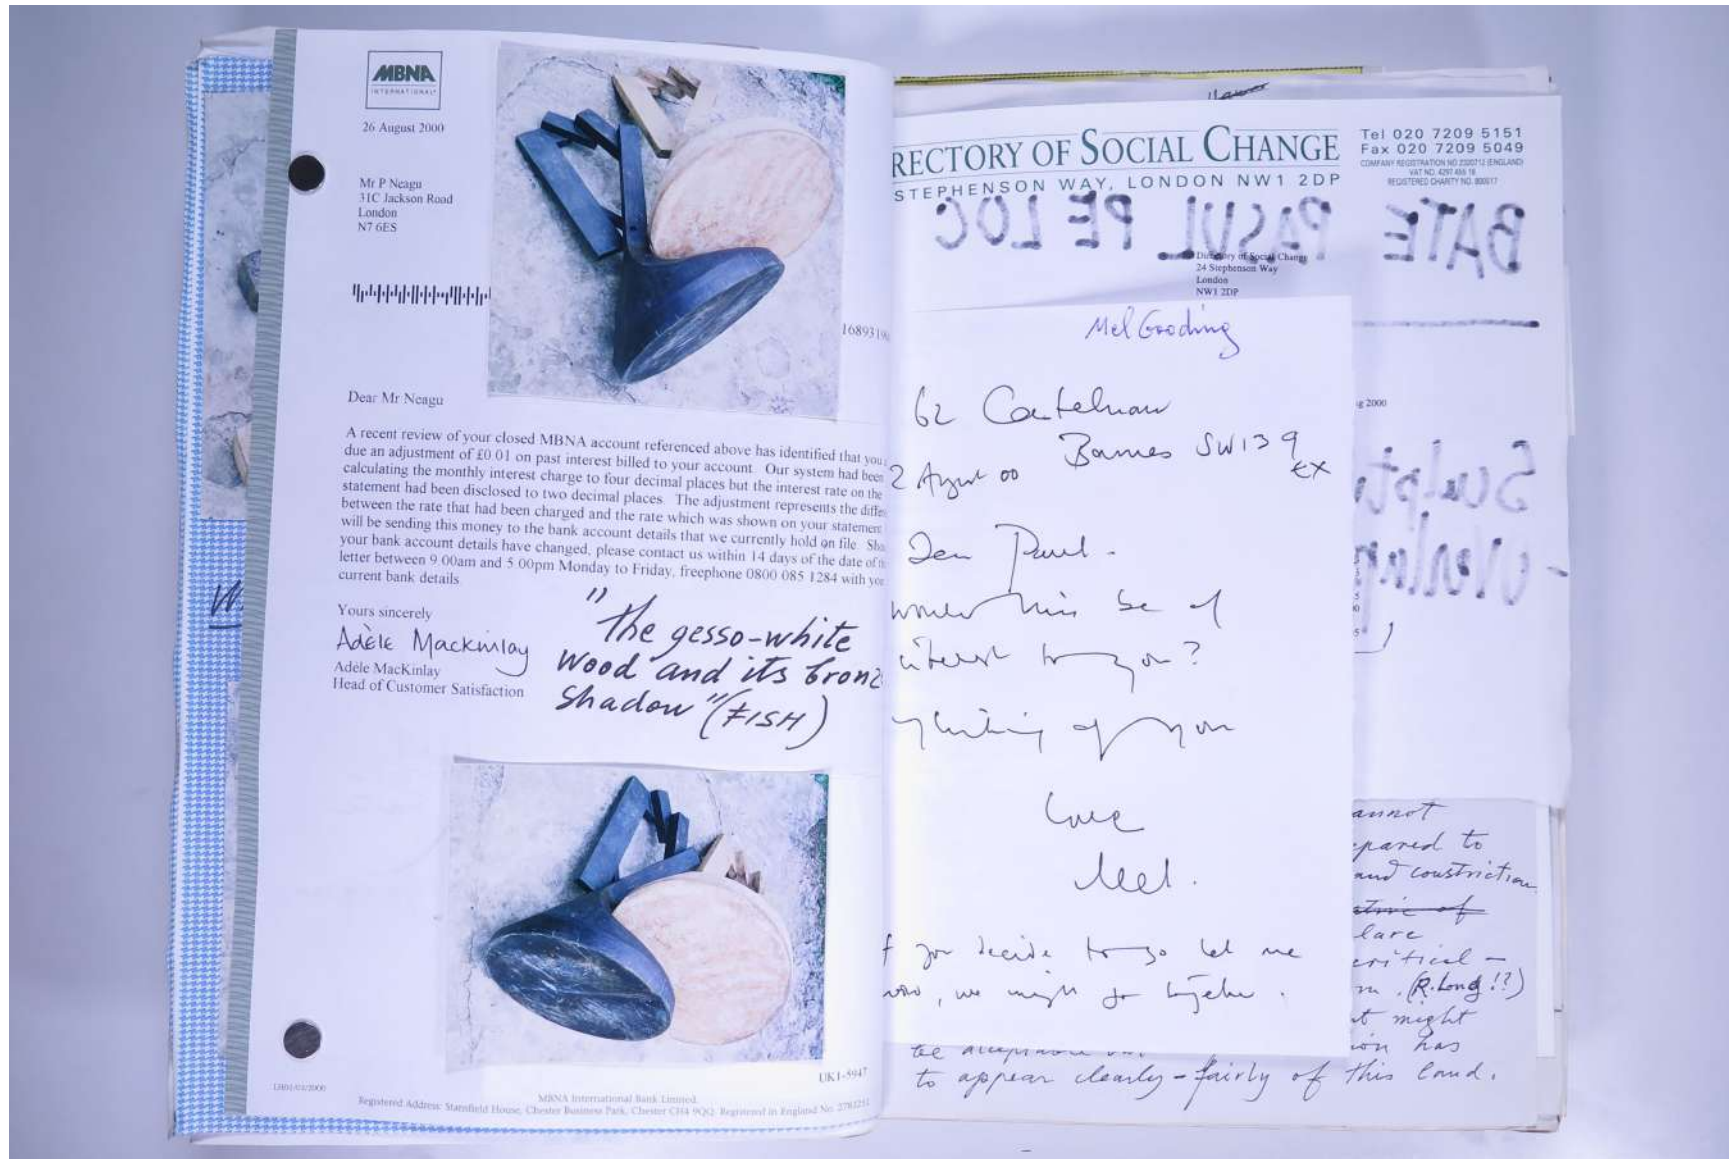 MBNA
INTERNATIONAL
26 August 2000
Mr P Neagu
31C Jackson Road
London
N7 6ES
1689319
Dear Mr Neagu
A recent review of your closed MBNA account referenced above has identified that you
due an adjustment of £0.01 on past interest billed to your account. Our system had been
calculating the monthly interest charge to four decimal places but the interest rate on the
statement had been disclosed to two decimal places. The adjustment represents the diffe
between the rate that had been charged and the rate which was shown on your statement
will be sending this money to the bank account details that we currently hold on file. Sho
your bank account details have changed, please contact us within 14 days of the date of
letter between 9.00am and 5.00pm Monday to Friday, freephone 0800 085 1284 with you
current bank details
Yours sincerely
Adèle Mackinlay
Adèle MacKinlay
Head of Customer Satisfaction
"The gesso-white
wood and its bronz
shadow" (FISH)
UK1-5947
MBNA International Bank Limited.
Registered Address: Stansfield House, Chester Business Park, Chester CH4 9QQ. Registered in England No. 2783251
RECTORY OF SOCIAL CHANGE
STEPHENSON WAY, LONDON NW1 2DP
Tel 020 7209 5151
Fax 020 7209 5049
COMPANY REGISTRATION NO 2320712 (ENGLAND)
REGISTERED CHARITY NO. 800517
BATE PASUL PE LOC
Directory of Social Change
24 Stephenson Way
London
NW1 2DP
g 2000
Sculpt
Mel Gooding
62 Castelnau
Barnes SW13 9
EX
2 August 00
Dear Paul.
would this be of
interest to you?
thinking of you
Love
Mel.
f you decide to go let me
know, we might go together.
annot
pared to
and constriction
lare
critical -
(R. Long!?)
t might
ion has
to appear clearly - fairly of this land.